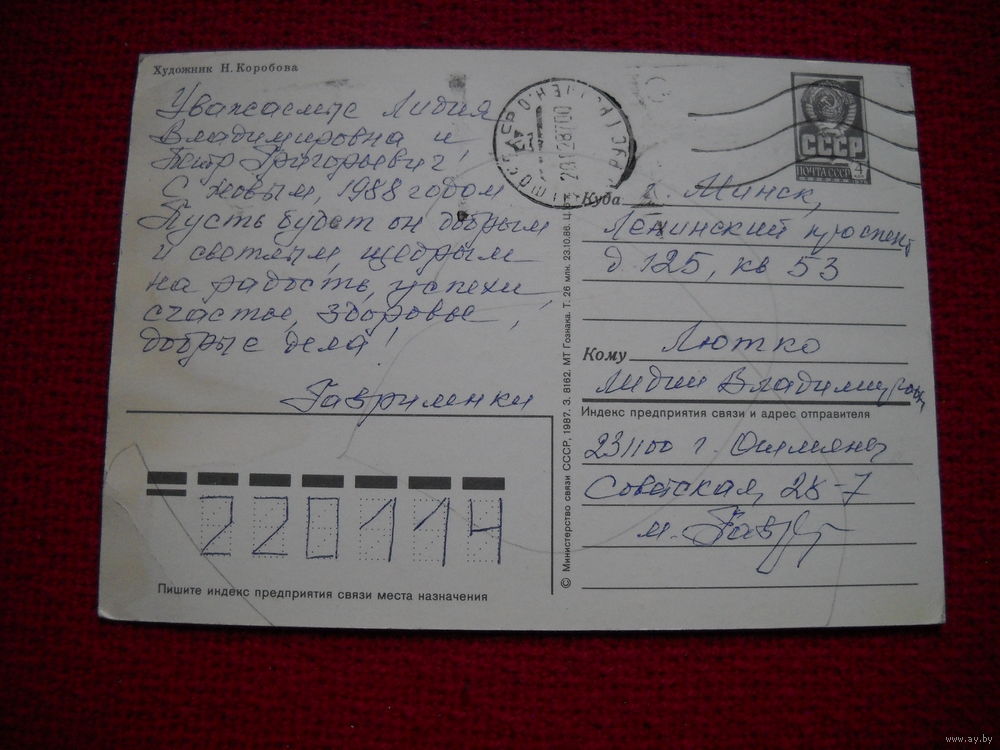 Художник Н. Коробова
Уважаемые Лидия
Владимировна и
Петр Григорьевич!
С новым, 1988 годом
Пусть будет он добрым
и светлым, щедрым
на радость, успехи,
счастье, здоровье,
добрые дела!
Гавриленки
Пишите индекс предприятия связи места назначения
220114
© Министерство связи СССР, 1987. З. 8162. МТ Гознака. Т. 26 млн. 23.10.86. Ц.
СССР
ПОЧТА СССР 4
Куда г. Минск,
Ленинский проспект
д. 125, кв 53
Кому Лютко
Лидии Владимировн
Индекс предприятия связи и адрес отправителя
231100 г. Ошмяны
Советская, 28-7
м. Гавр
www.ay.by